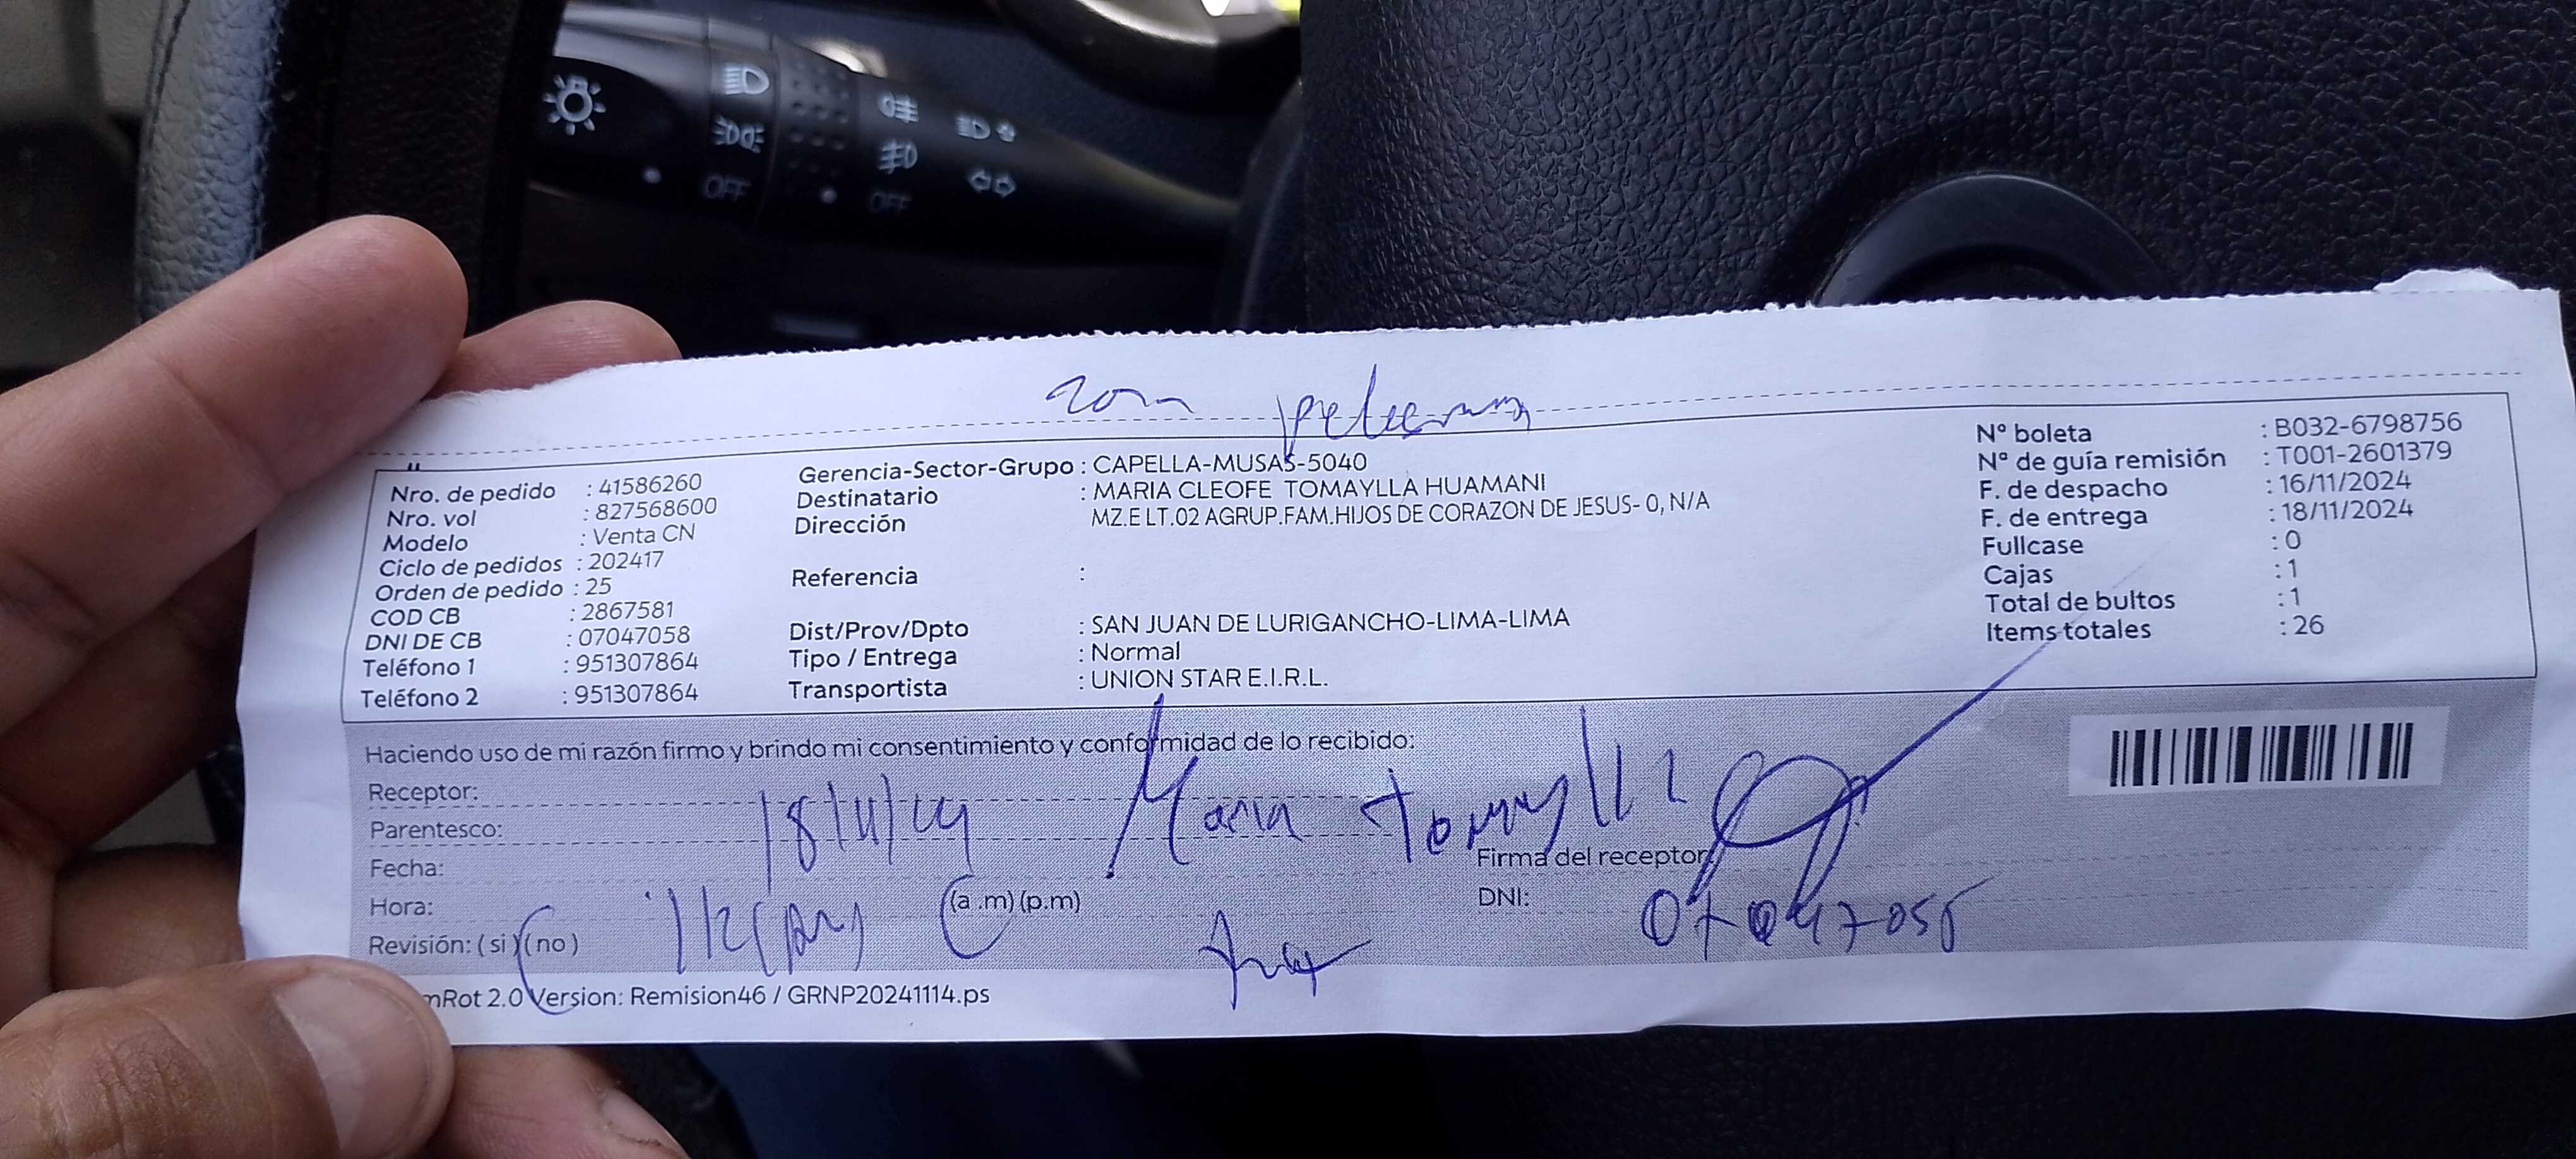 OFF
OFF
Nro. de pedido : 41586260
Nro. vol : 827568600
Modelo : Venta CN
Ciclo de pedidos : 202417
Orden de pedido : 25
COD CB : 2867581
DNI DE CB : 07047058
Teléfono 1 : 951307864
Teléfono 2 : 951307864
Gerencia-Sector-Grupo : CAPELLA-MUSAS-5040
Destinatario : MARIA CLEOFE TOMAYLLA HUAMANI
Dirección MZ.E LT.02 AGRUP.FAM.HIJOS DE CORAZON DE JESUS- 0, N/A
Referencia :
Dist/Prov/Dpto : SAN JUAN DE LURIGANCHO-LIMA-LIMA
Tipo / Entrega : Normal
Transportista : UNION STAR E.I.R.L.
Nº boleta : B032-6798756
Nº de guía remisión : T001-2601379
F. de despacho : 16/11/2024
F. de entrega : 18/11/2024
Fullcase : 0
Cajas : 1
Total de bultos : 1
Items totales : 26
Haciendo uso de mi razón firmo y brindo mi consentimiento y conformidad de lo recibido:
Receptor: Maria Tomaylla
Parentesco:
Fecha: 18/11/24
Hora: (a .m) (p.m)
Revisión: ( si ) ( no )
Firma del receptor:
DNI:
mRot 2.0 Version: Remision46 / GRNP20241114.ps